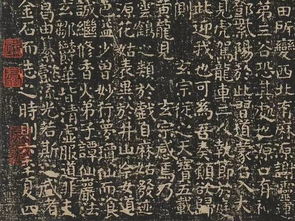 田所變西北有麻源謝靈
第三谷恐其處也源口有神
鄧紫陽於此習道蒙召入大
見虎駕龍車二人執節於庭
此迎我也可為吾奏願欲歸
玄宗從之天寶五載
黃龍見玄宗感焉乃
雲鶴之類於戲自麻姑發跡
源花姑表異於井山今女道
益少曾妙行夢瓊仙而餐
誠繼修香火弟子譚仙巖法
鄒鬱華皆清虛服道非夫
曷由纂懿流光若斯之盛者
金石而志之時則六年夏四